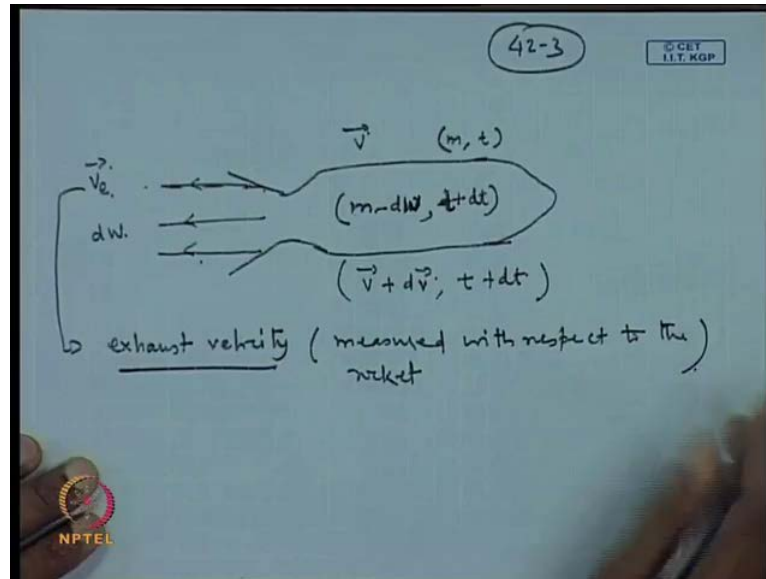 42-3
© CET
I.I.T. KGP
v⃗ (m, t)
v⃗e.
dW.
(m-dW, t+dt)
(v⃗ + dv⃗; t + dt)
exhaust velocity ( measured with respect to the )
rocket
NPTEL